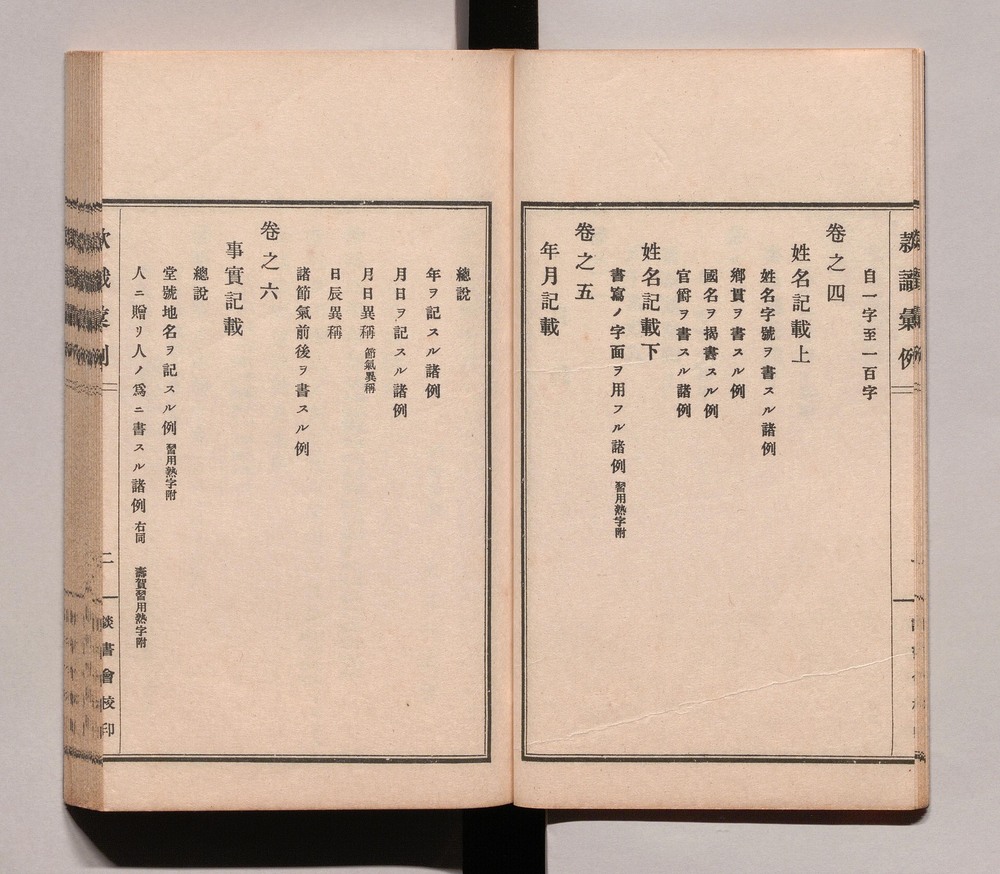 自一字至一百字
卷之四
姓名記載上
姓名字號ヲ書スル諸例
鄕貫ヲ書スル例
國名ヲ揭書スル例
官爵ヲ書スル諸例
姓名記載下
書寫ノ字面ヲ用フル諸例 習用熟字附
卷之五
年月記載
總說
年ヲ記スル諸例
月日ヲ記スル諸例
月日異稱 節氣異稱
日辰異稱
諸節氣前後ヲ書スル例
卷之六
事實記載
總說
堂號地名ヲ記スル例 習用熟字附
人ニ贈リ人ノ爲ニ書スル諸例 右同 壽賀習用熟字附
二
談書會校印